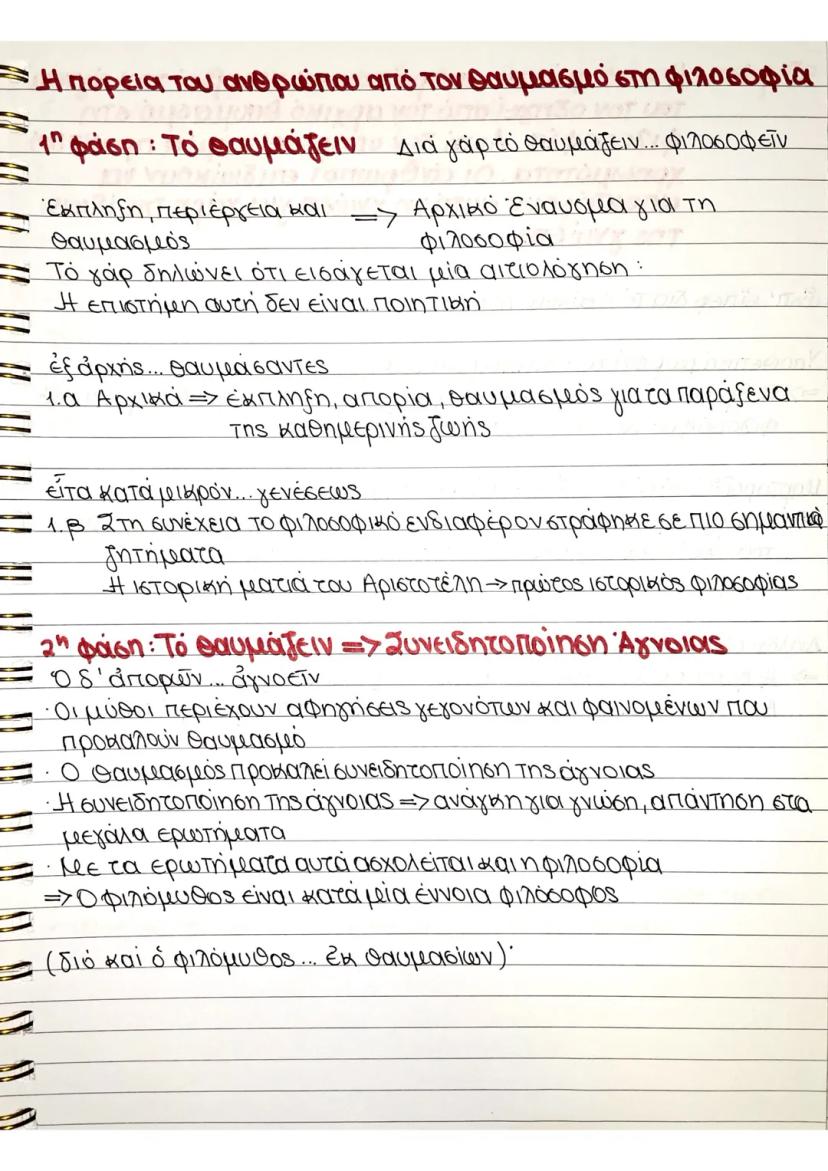 Η πορεία του ανθρώπου από τον θαυμασμό στη φιλοσοφία
1η φάση : Τό θαυμάζειν Διά γάρ τό θαυμάζειν... φιλοσοφεῖν
Έκπληξη, περιέργεια και => Αρχικό έναυσμα για τη
θαυμασμός φιλοσοφία
Τό γάρ δηλώνει ότι εισάγεται μία αιτιολόγηση :
Η επιστήμη αυτή δεν είναι ποιητική
ἐξ ἀρχῆς... θαυμάσαντες
1.α Αρχικά => έκπληξη, απορία, θαυμασμός για τα παράξενα
της καθημερινής ζωής
εἶτα κατά μικρόν... γενέσεως
1.β Στη συνέχεια το φιλοσοφικό ενδιαφέρον στράφηκε σε πιο σημαντικά
ζητήματα
Η ιστορική ματιά του Αριστοτέλη → πρώτος ιστορικός φιλοσοφίας
2η φάση : Τό θαυμάζειν => Συνειδητοποίηση Άγνοιας
Ὁ δ' ἀπορῶν... ἀγνοεῖν
· Οι μύθοι περιέχουν αφηγήσεις γεγονότων και φαινομένων που
προκαλούν θαυμασμό
· Ο θαυμασμός προκαλεί συνειδητοποίηση της άγνοιας
· Η συνειδητοποίηση της άγνοιας => ανάγκη για γνώση, απάντηση στα
μεγάλα ερωτήματα
· Με τα ερωτήματα αυτά ασχολείται και η φιλοσοφία
=> Ο φιλόμυθος είναι κατά μία έννοια φιλόσοφος
(διό και ὁ φιλόμυθος... ἐκ θαυμασίων)·